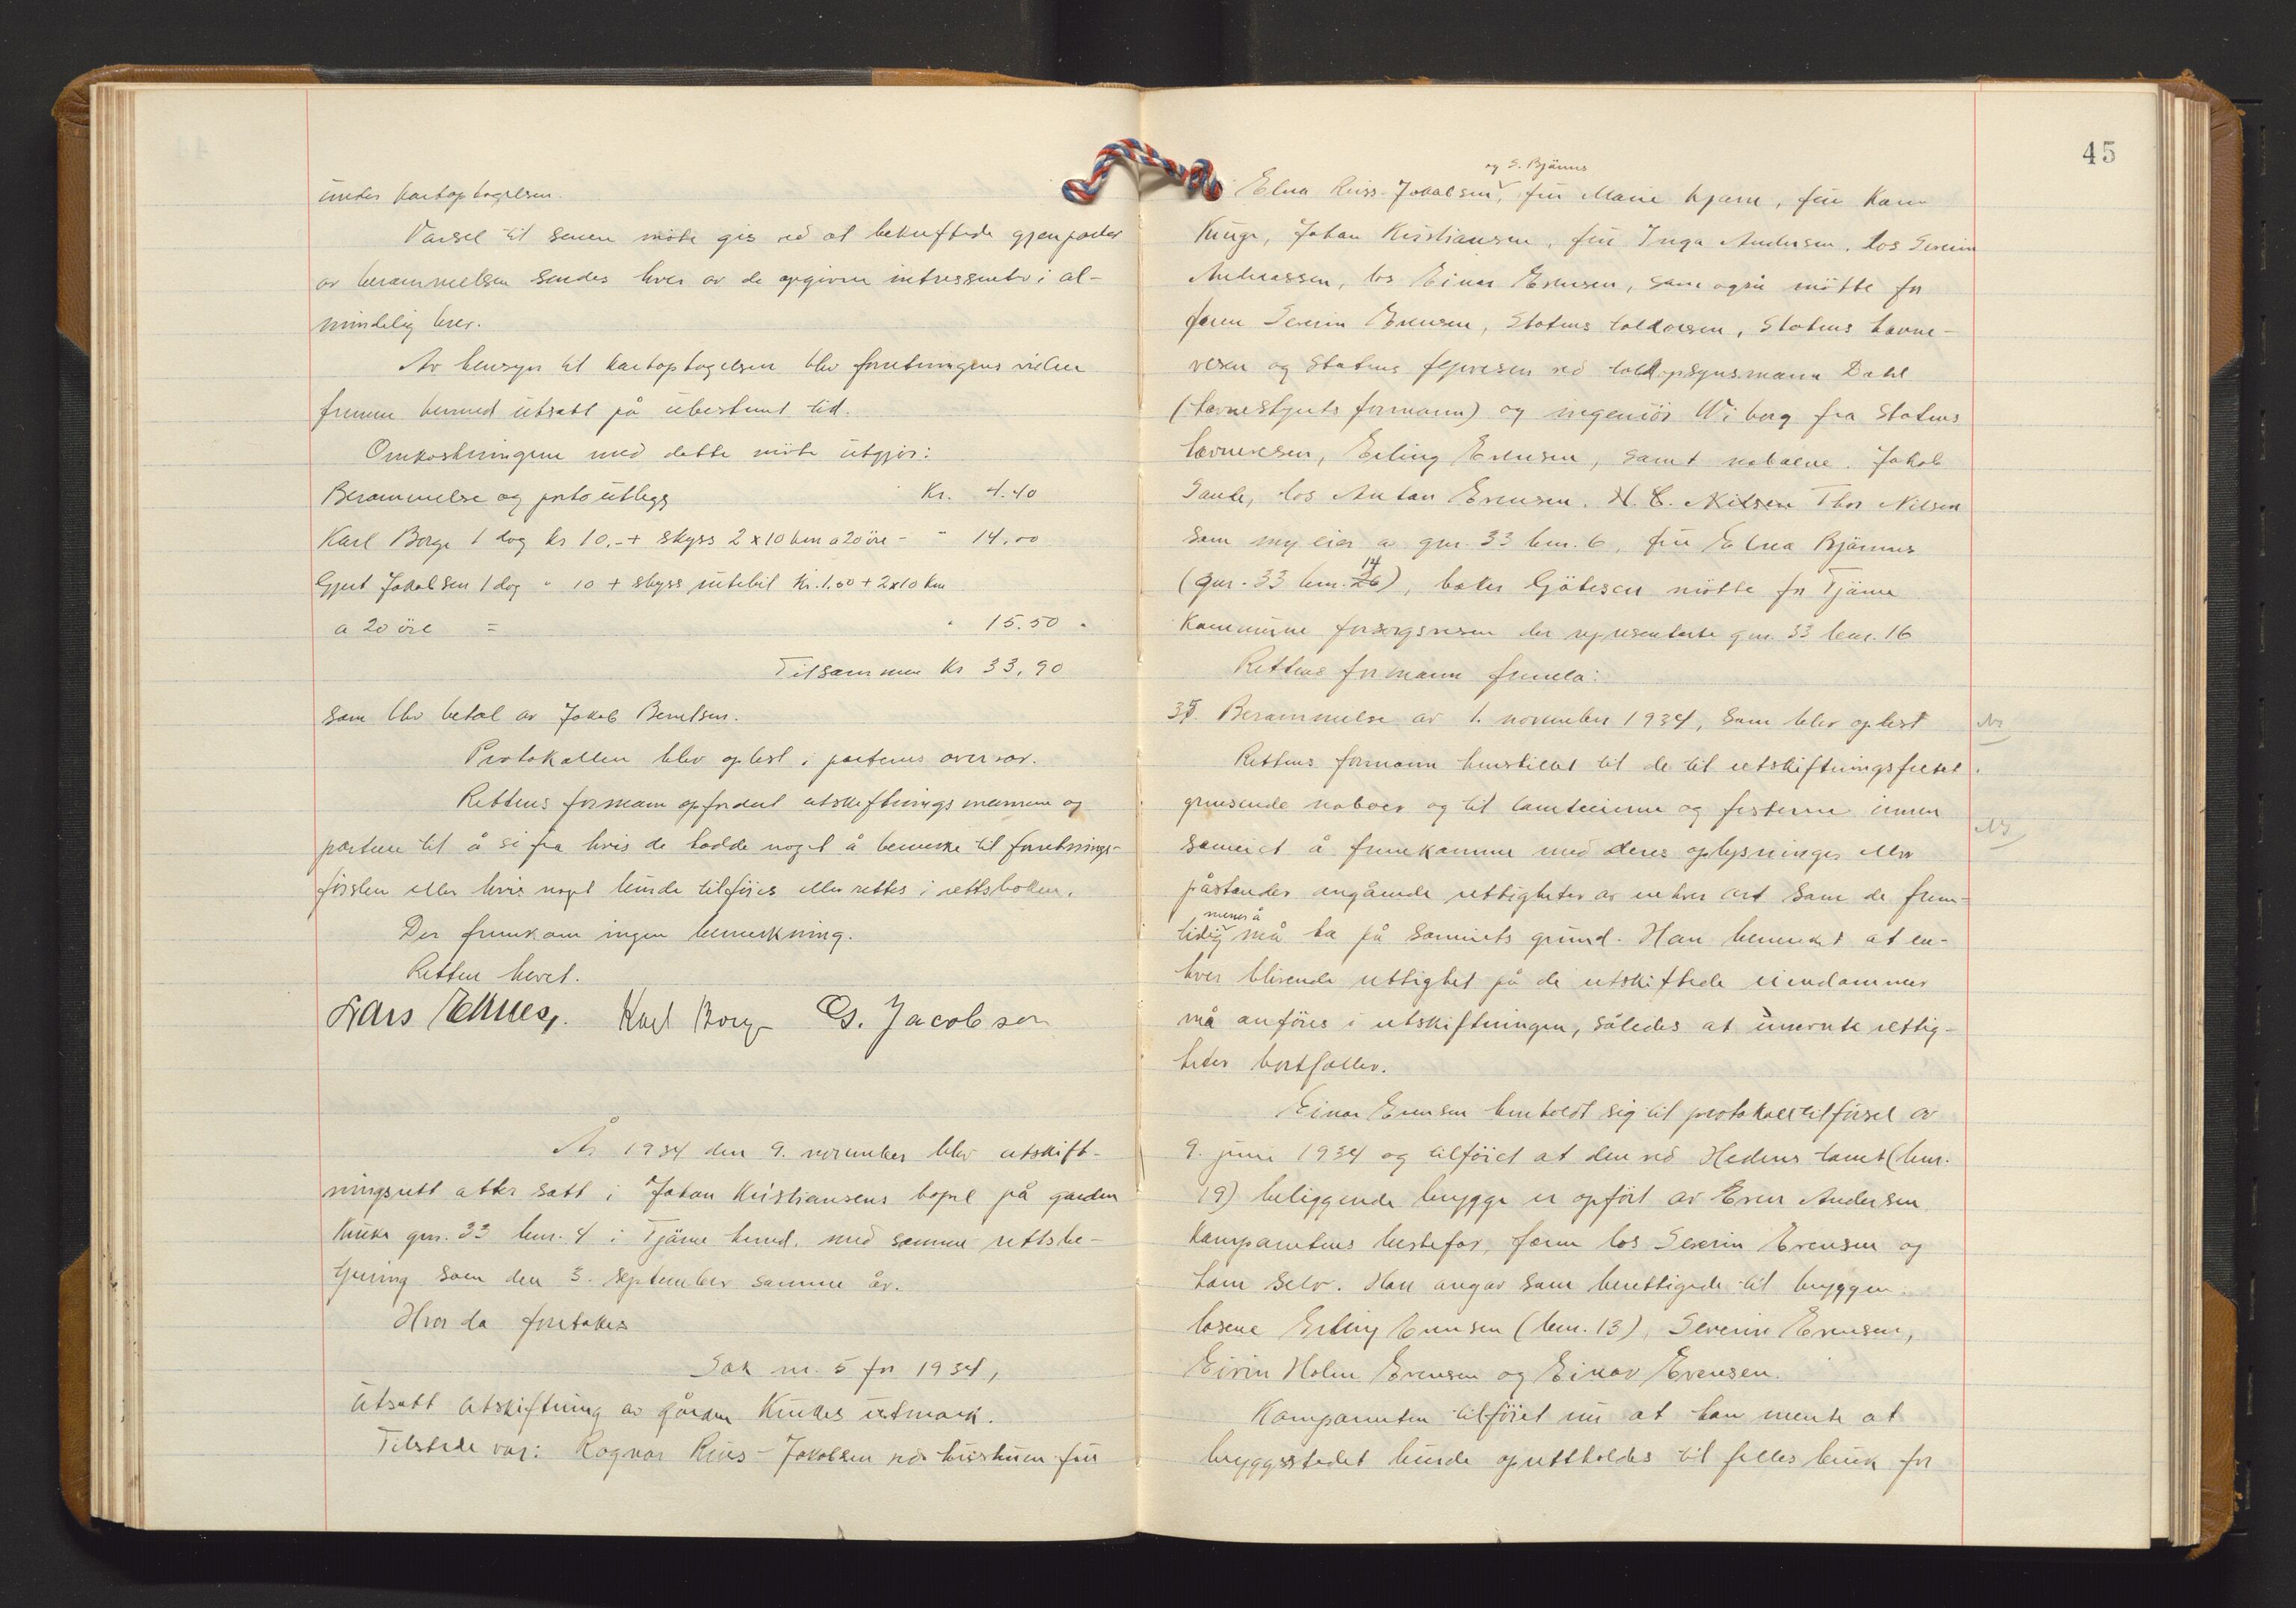 under kartoptagelsen.
Varsel til senere möte gis ved at bekreftede gjenparter
av berammelsen sendes hver av de opgivne intressenter i al-
mindelig brev.
Av hensyn til kartoptagelsen blev forretningens videre
fremme hermed utsatt på ubestemt tid.
Omkostningene med dette möte utgjör:
Berammelse og porto utlegg Kr. 4.40
Karl Borge 1 dag kr 10.- + skyss 2 x 10 km a 20 öre - " 14.00
Gjert Jakobsen 1 dag " 10 + skyss rutebil Kr. 1.00 + 2x10 km
a 20 öre = " 15.50 "
Tilsammen Kr 33,90
som blev betal av Jakob Berntsen.
Protokollen blev oplest i partenes overvær.
Rettens formann opfordret utskiftningsmennene og
partene til å si fra hvis de hadde noget å bemerke til forretnings-
förslen eller hvis noget burde tilföies eller rettes i rettsboken.
Der fremkom ingen bemerkning.
Retten hevet.
Lars Karl Borge G. Jacobsen
År 1934 den 9. november blev utskift-
ningsrett atter satt i Johan Kristiansens bopel på garden
Kruke gnr. 33 bnr. 4 i Tjöme herred. med samme rettsbe-
tjening som den 3. september samme år.
Hvor da foretokes
Sak nr. 5 for 1934,
utsatt utskiftning av gården Krukes utmark.
Tilstede var: Ragnar Riis-Jakobsen ved hustruen fru
45
og S. Bjärnes
Elna Riiss-Jakobsen, fru Marie Kjære, fru Karen
Kruge, Johan Kristiansen, fru Inga Andersen. los Severin
Andreassen, los Einar Evensen, som også mötte for
faren Severin Evensen, Statens tolldvesen, Statens havne-
vesen og Statens fyrvesen ved tolldopsynsmann Dahl
(havnestyrets formann) og ingeniör Wiborg fra Statens
havnevesen, Erling Evensen, samt naboene. Jakob
Sande, los Anton Evensen. H. C. Nilsen Thor Nilsen
som ny eier av gnr. 33 bnr. 6, fru Elna Bjärnes
(gnr. 33 bnr. 26 14), baker Götesen mötte for Tjöme
Kommune forsorgsvesen der representerte gnr. 33 bnr. 16
Rettens formann fremla:
35. Berammelse av 1. november 1934, som blev oplest
Rettens formann henstillet til de til utskiftningsfeltet
grensende naboer og til tomteeierne og festerne innen
sameiet å fremkomme med deres oplysninger eller
påstander angående rettigheter av enhver art som de frem-
tidig mener å må ha på sameiets grund. Han bemerket at en-
hver blivende rettighet på de utskiftede eiendommer
må anföres i utskiftningen, således at unevnte rettig-
heter bortfaller.
Einar Evensen henholdt sig til protokolltilförsel av
9. juni 1934 og tilföiet at den ved Hedens tomt (bnr.
19) beliggende brygge er opfört av Even Andersen
Komparentens bestefar, faren los Severin Evensen og
ham selv. Han angav som berettigede til bryggen
losene Erling Evensen (bnr. 13), Severin Evensen,
Eivin Holm Evensen og Einar Evensen.
Komparenten tilföiet nu at han mente at
bryggestedet burde oprettholdes til felles bruk for